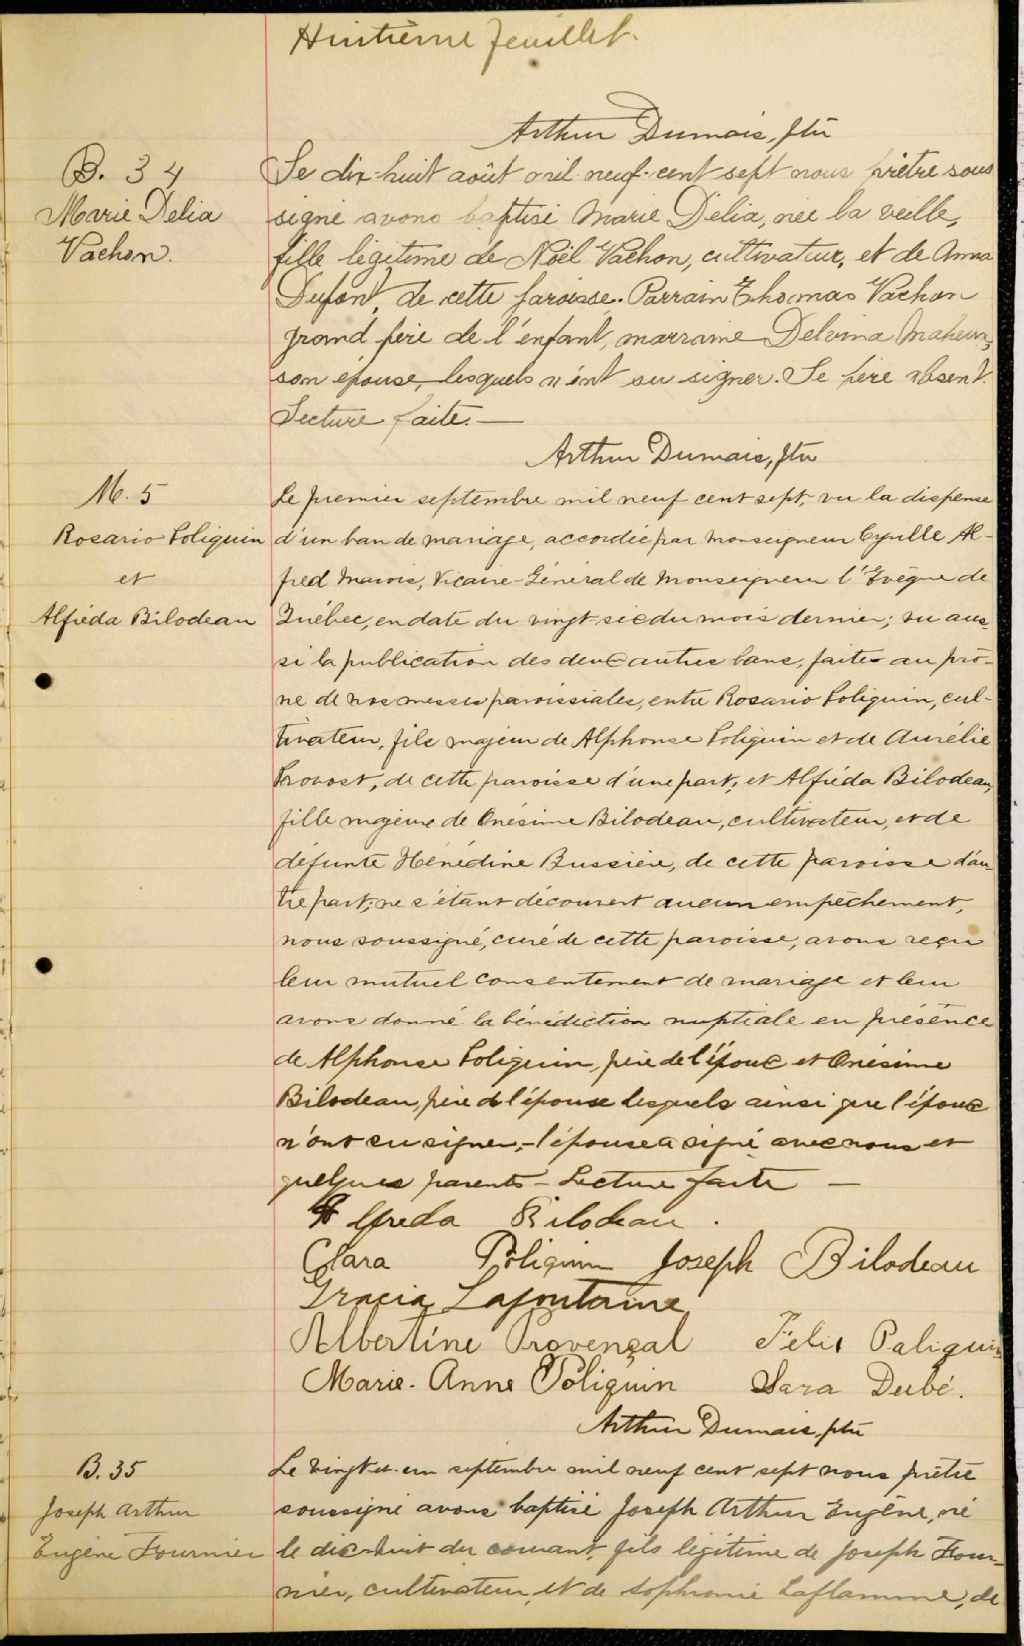 Huitième feuillet.
Arthur Dumais, ptre
B. 34
Marie Délia
Vachon.
Le dix-huit août mil-neuf-cent sept nous prêtre sous
signé avons baptisé Marie Délia, née la veille,
fille légitime de Noël Vachon, cultivateur, et de Anna
Dufont, de cette paroisse. Parrain Thomas Vachon
grand père de l'enfant, marraine Delvina Maheux,
son épouse, lesquels n'ont su signer. Le père absent.
Lecture faite.—
Arthur Dumais, ptre
M. 5
Rosario Poliquin
et
Alfréda Bilodeau
Le premier septembre mil neuf cent sept, vu la dispense
d'un ban de mariage, accordée par Monseigneur Cyrille Al-
fred Marois, Vicaire-Général de Monseigneur l'Evêque de
Québec, en date du vingt-six du mois dernier; vu aus-
si la publication des deux autres bans, faite au prô-
ne de nos messes paroissiales, entre Rosario Poliquin, cul-
tivateur, fils majeur de Alphonse Poliquin et de Aurélie
Provost, de cette paroisse d'une part; et Alfréda Bilodeau,
fille majeure de Onésime Bilodeau, cultivateur, et de
défunte Hénédine Bussière, de cette paroisse d'au-
tre part; ne s'étant découvert aucun empêchement,
nous soussigné, curé de cette paroisse, avons reçu
leur mutuel consentement de mariage et leur
avons donné la bénédiction nuptiale en présence
de Alphonse Poliquin, père de l'époux et Onésime
Bilodeau, père de l'épouse lesquels ainsi que l'époux
n'ont su signer,- l'épouse a signé avec nous et
quelques parents - Lecture faite —
Alfreda Bilodeau.
Clara Poliquin Joseph Bilodeau
Gracia Lafontaine
Albertine Provençal Félix Paliquin
Marie-Anne Poliquin Sara Dubé.
Arthur Dumais, ptre
B. 35
Joseph Arthur
Eugène Fournier
Le vingt et un septembre mil neuf cent sept nous prêtre
soussigné avons baptisé Joseph Arthur Eugène, né
le dix-huit du courant, fils légitime de Joseph Four-
nier, cultivateur, et de Sophronie Laflamme, de